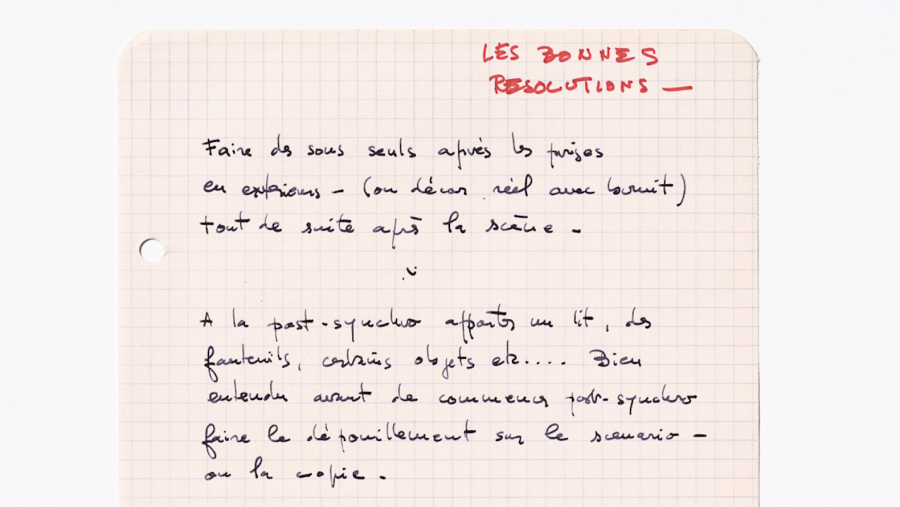 LES BONNES
RESOLUTIONS —
Faire des sons seuls après les prises
en exterieurs – (ou décor réel avec bruit)
tout de suite après la scène –
A la post-synchro apporter un lit, des
fauteuils, certains objets etc.... Bien
entendu avant de commencer post-synchro
faire le dépouillement sur le scenario –
ou la copie.